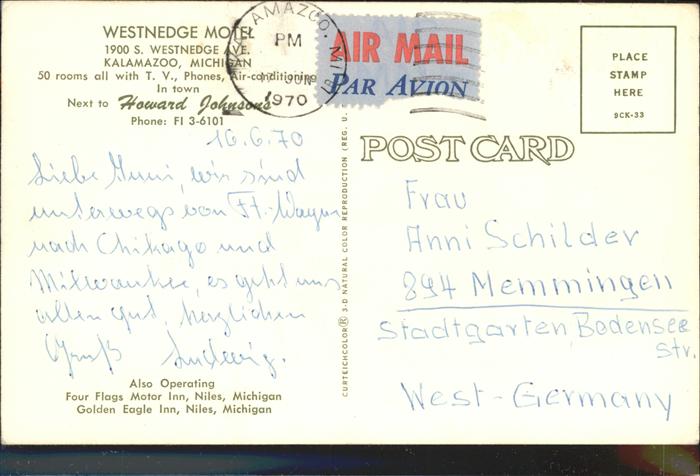 WESTNEDGE MOTEL
1900 S. WESTNEDGE AVE.
KALAMAZOO, MICHIGAN
50 rooms all with T. V., Phones, Air-conditioning
In town
Next to Howard Johnson's
Phone: FI 3-6101
AMAZOO, MI
PM
17 JUN
1970
AIR MAIL
PAR AVION
PLACE
STAMP
HERE
9CK-33
POST CARD
16.6.70
Liebe Anni, wir sind
unterwegs von Ft. Wayne
nach Chikago und
Milwaukee, es geht uns
allen gut, herzlichen
Gruß Ludwig.
Also Operating
Four Flags Motor Inn, Niles, Michigan
Golden Eagle Inn, Niles, Michigan
CURTEICHCOLOR® 3-D NATURAL COLOR REPRODUCTION (REG. U.
Frau
Anni Schilder
894 Memmingen
Stadtgarten, Bodensee
Str.
West-Germany